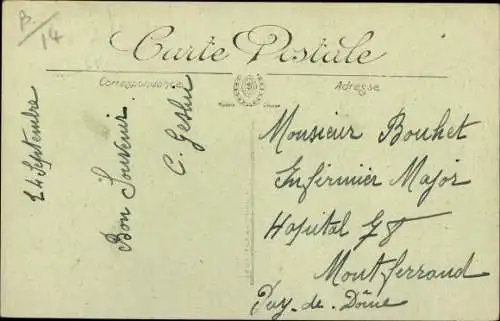 B/14
Carte Postale
Correspondance
Adresse
14 Septembre
Bon Souvenir.
C. Geslin
Monsieur Bouhet
Infirmier Major
Hopital 78
Montferrand
Puy-de-Dôme